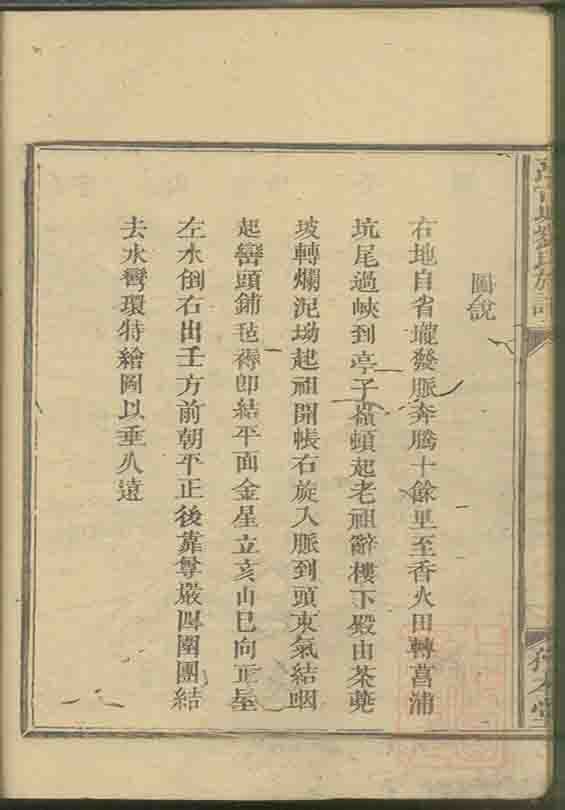 圖說
右地自省壠發脈奔騰十餘里至香火田轉菖浦
坑尾過峽到亭子嶺頓起老祖辭樓下殿由茶蔸
坡轉爛泥坳起祖開帳右旋入脈到頭束氣結咽
起巒頭鋪毡褥卽結平面金星立亥山巳向正屋
左水倒右出壬方前朝平正後靠尊嚴四圍團結
去水彎環特繪圖以垂久遠